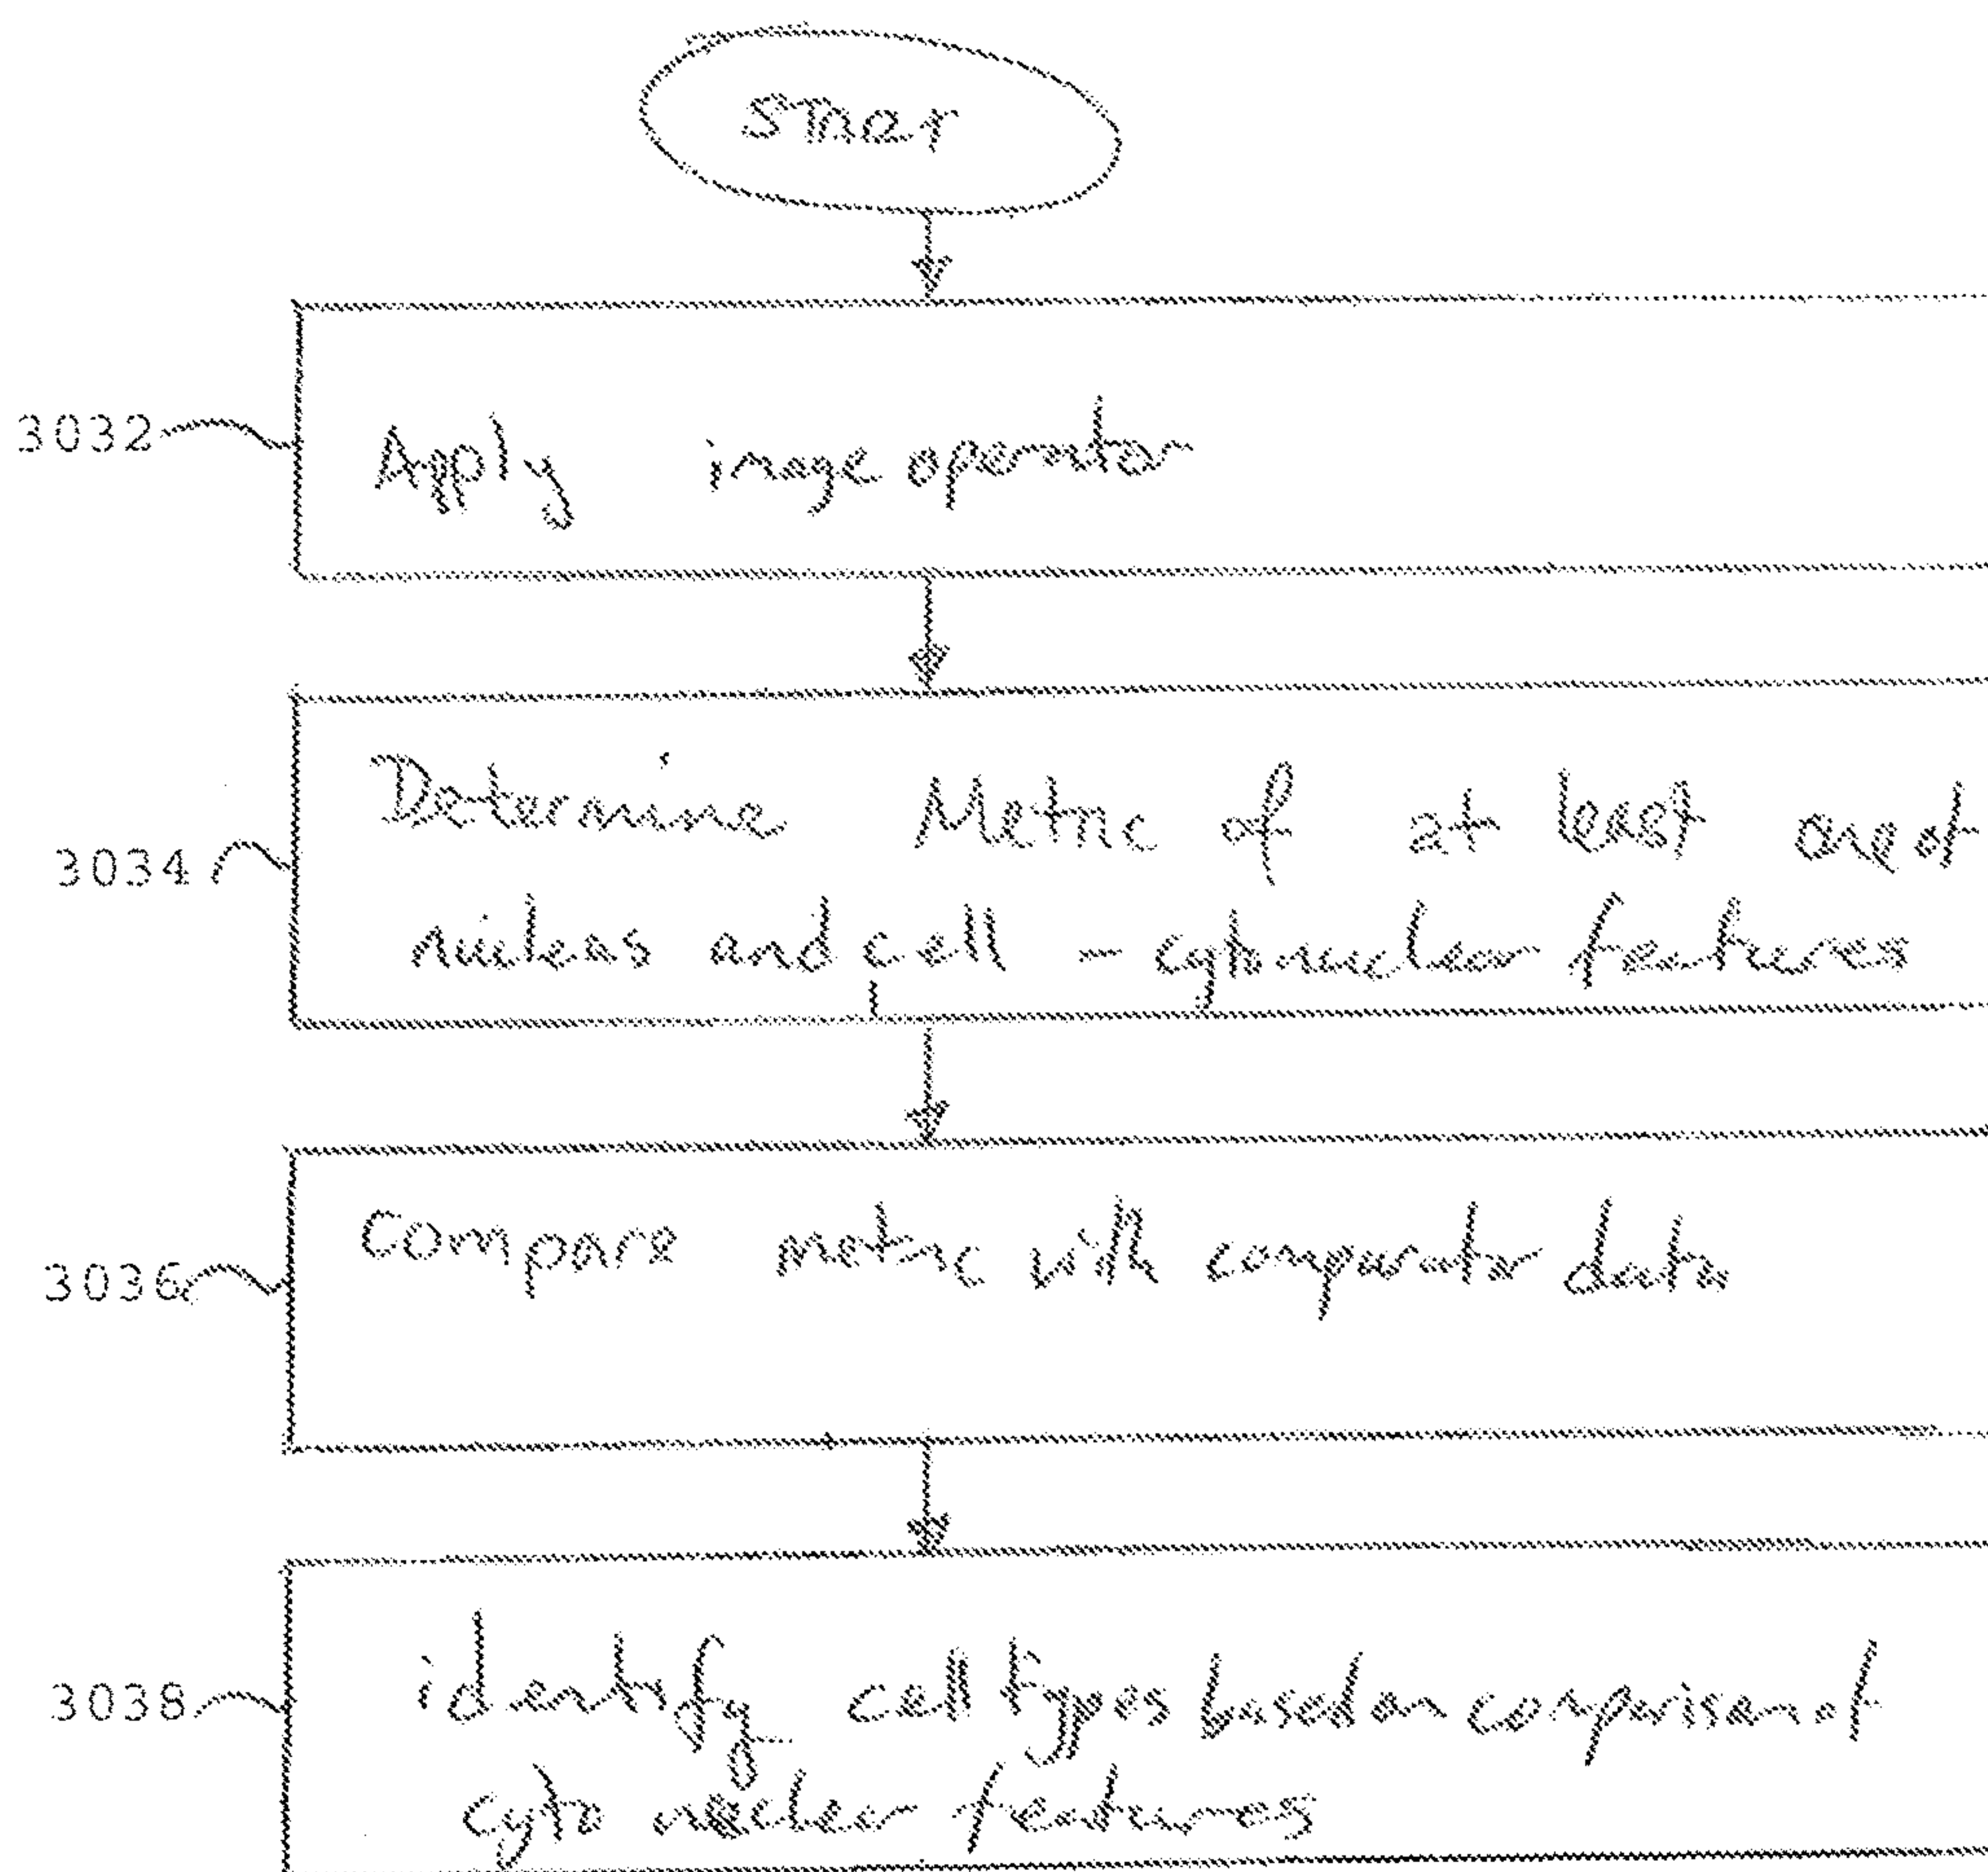 Smar
3032
Apply image operator
3034
Determine Metric of at least one of
nucleus and cell - cytonuclear features
3036
Compare metric with comparator data
3038
identify cell types based on comparison of
cyto nuclear features